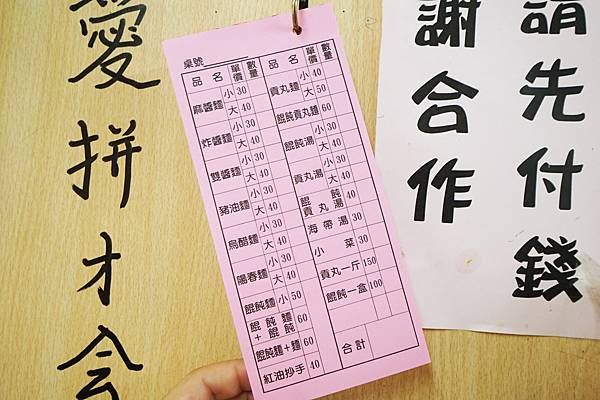 愛拼才会
桌號
品名 單價 數量
麻醬麵 小 30
大 40
炸醬麵 小 30
大 40
雙醬麵 小 30
大 40
豬油麵 小 30
大 40
烏醋麵 小 30
大 40
陽春麵 小 30
大 40
餛飩麵 小 50
餛飩麵+餛飩 60
餛飩麵+麵 60
紅油抄手 40
品名 單價 數量
貢丸麵 小 40
大 50
餛飩貢丸麵 60
餛飩湯 小 30
大 40
貢丸湯 小 30
大 40
餛飩貢丸湯 40
海帶湯 30
小菜 30
貢丸一斤 150
餛飩一盒 100
合計
請先付錢
謝合作